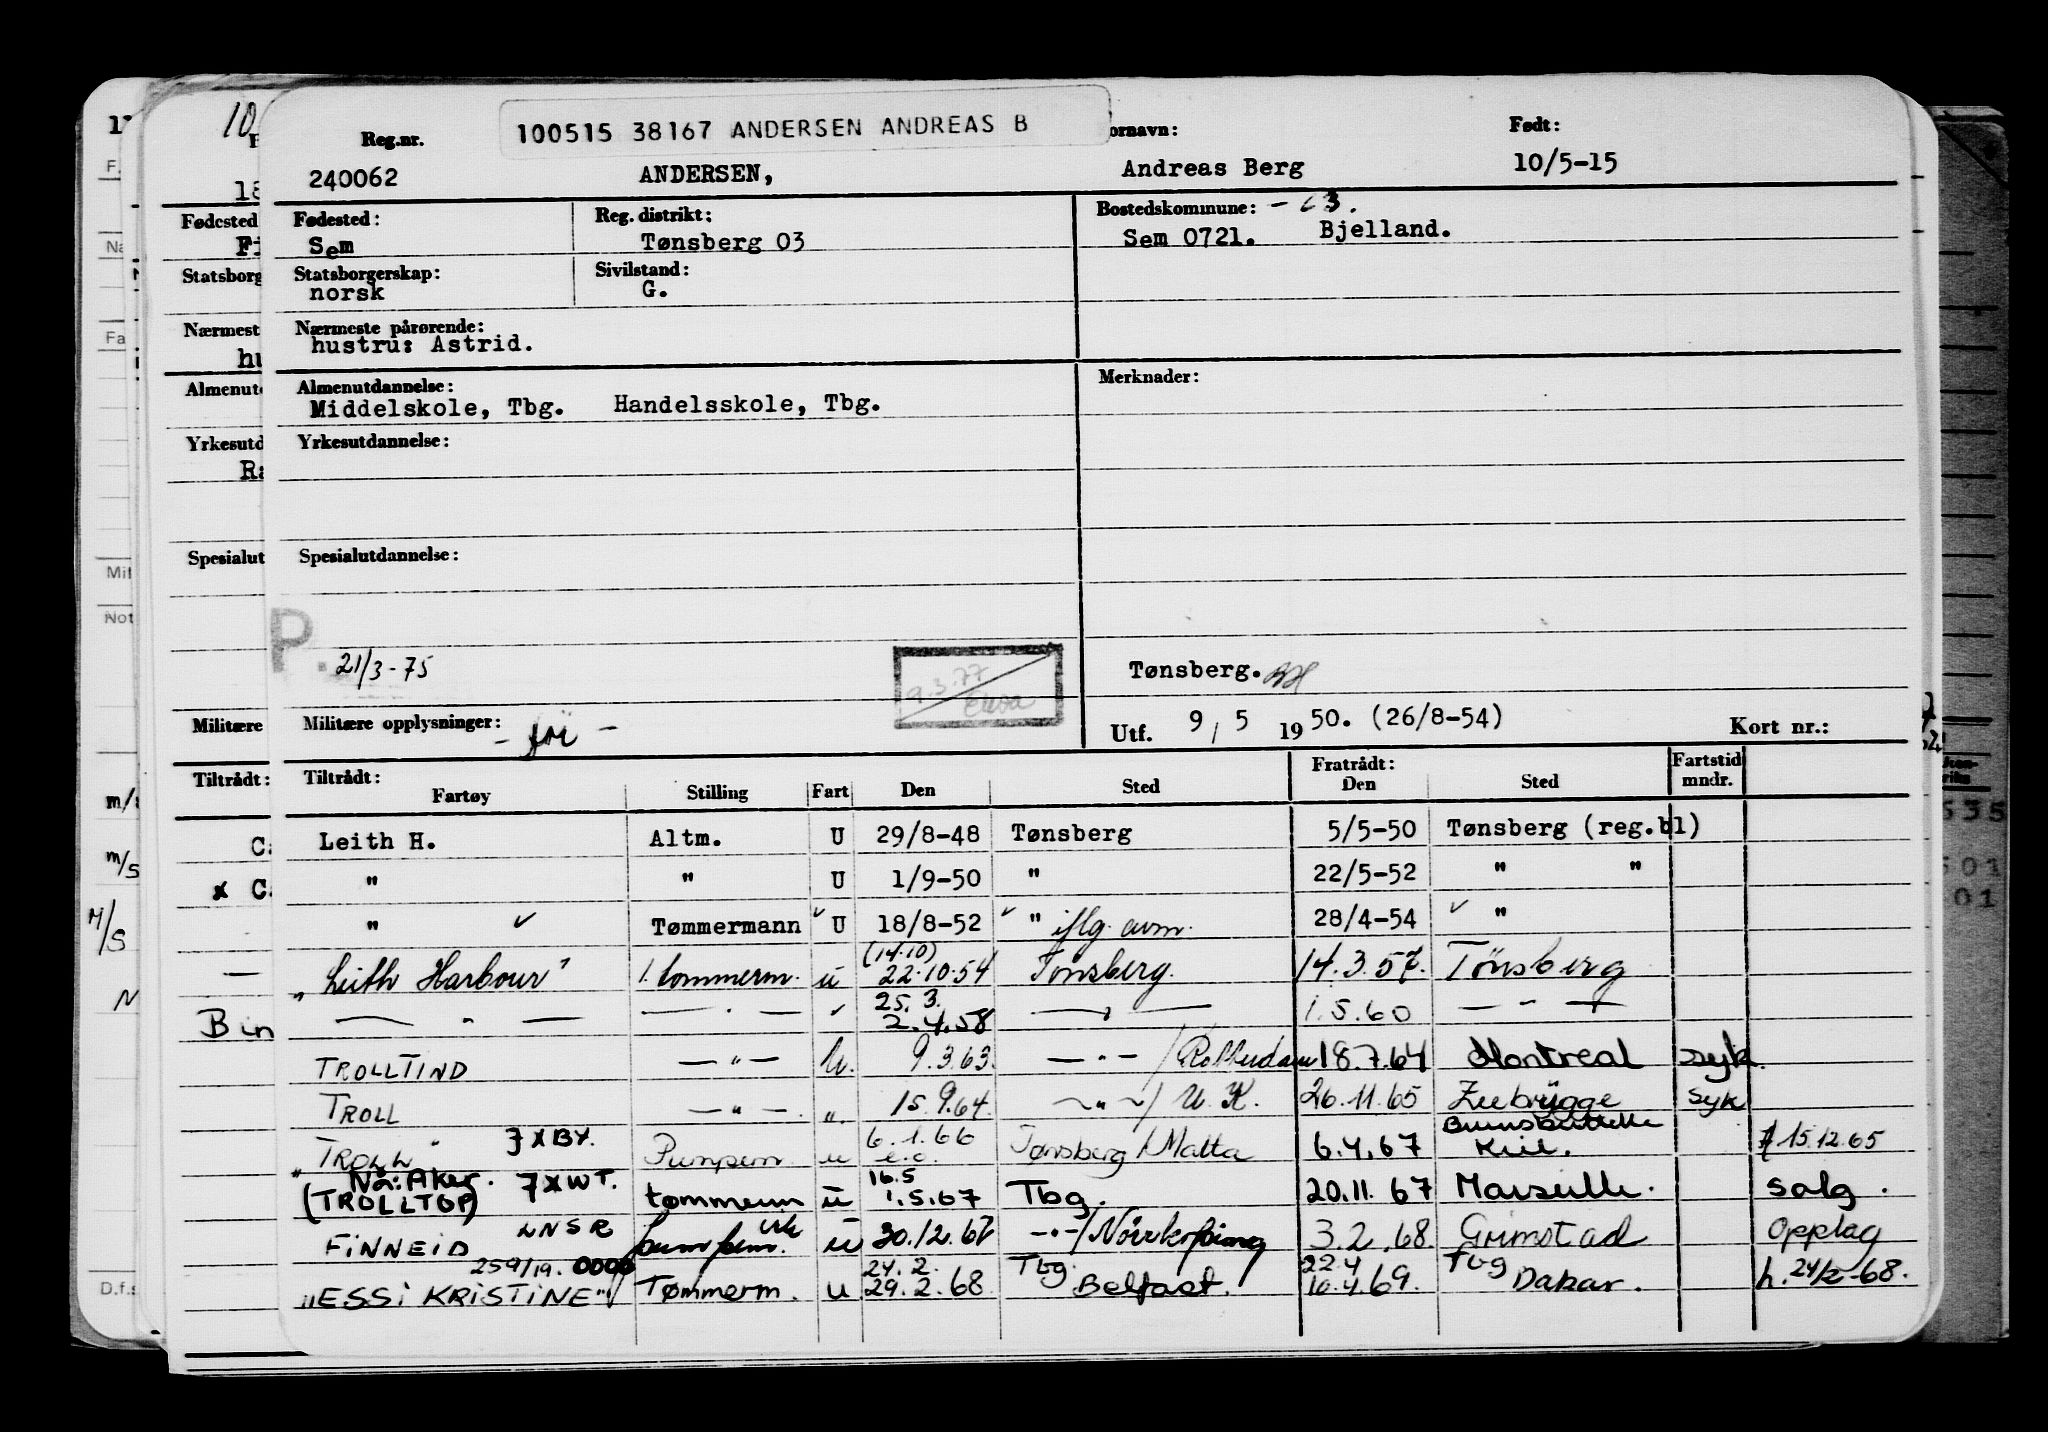 100515 38167 ANDERSEN ANDREAS B
Reg.nr. ornavn: Født:
240062 ANDERSEN, Andreas Berg 10/5-15
Fødested: Reg. distrikt: Bostedskommune: - 63.
Sem Tønsberg 03 Sem 0721. Bjelland.
Statsborgerskap: Sivilstand:
norsk G.
Nærmeste pårørende:
hustru: Astrid.
Almenutdannelse: Merknader:
Middelskole, Tbg. Handelsskole, Tbg.
Yrkesutdannelse:
Spesialutdannelse:
P. 21/3-75
9.3.77
Tønsberg.
Militære opplysninger: - fri -
Utf. 9/5 1950. (26/8-54) Kort nr.:
Tiltrådt: Fratrådt: Fartstid
Fartøy Stilling Fart Den Sted Den Sted mndr.
Leith H. Altm. U 29/8-48 Tønsberg 5/5-50 Tønsberg (reg.bl)
" " U 1/9-50 " 22/5-52 " "
" Tømmermann U 18/8-52 " iflg. avm. 28/4-54 "
(14.10)
"Leith Harbour" 1. tømmerm. u 22.10.54 Tønsberg. 14.3.57. Tönsberg
25. 3.
— " — — " — " 2.4.58 — " — 1.5.60 — " —
TROLLTIND — " — U. 9.3.63. — " — / Rotterdam 18.7.64 Montreal syk.
TROLL — " — " 15.9.64. — " — / U.K. 26.11.65 Zeebrügge syk
TROLL " 7 X BY. Pumpem. u 6.1.66 e.o. Tønsberg / Malta 6.4.67 Brunsbüttelk Kiel. 15.12.65
Nå: Aker. 7 X WT. 16.5
(TROLLTOP) tømmerm u 1.5.67 Tbg. 20.11.67 Marseille. salg.
LNSR
FINNEID pumpem. u 30.12.67 — " — / Nörrkøping 3.2.68. Grimstad Opplag
259/19. 0000 24.2. Tbg. 22.4 Tbg
"ESSI KRISTINE" Tømmerm. u 29.2.68 Belfast. 10.4.69. Dakar. h. 24/2-68.